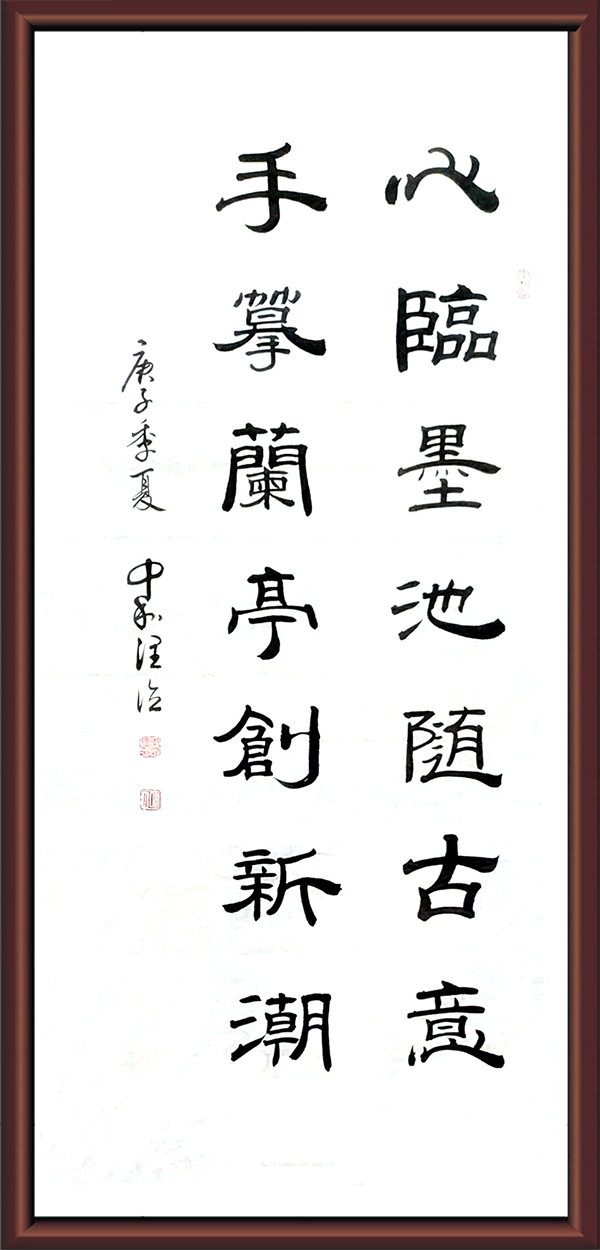 心臨墨池隨古意
手摹蘭亭創新潮
庚子季夏